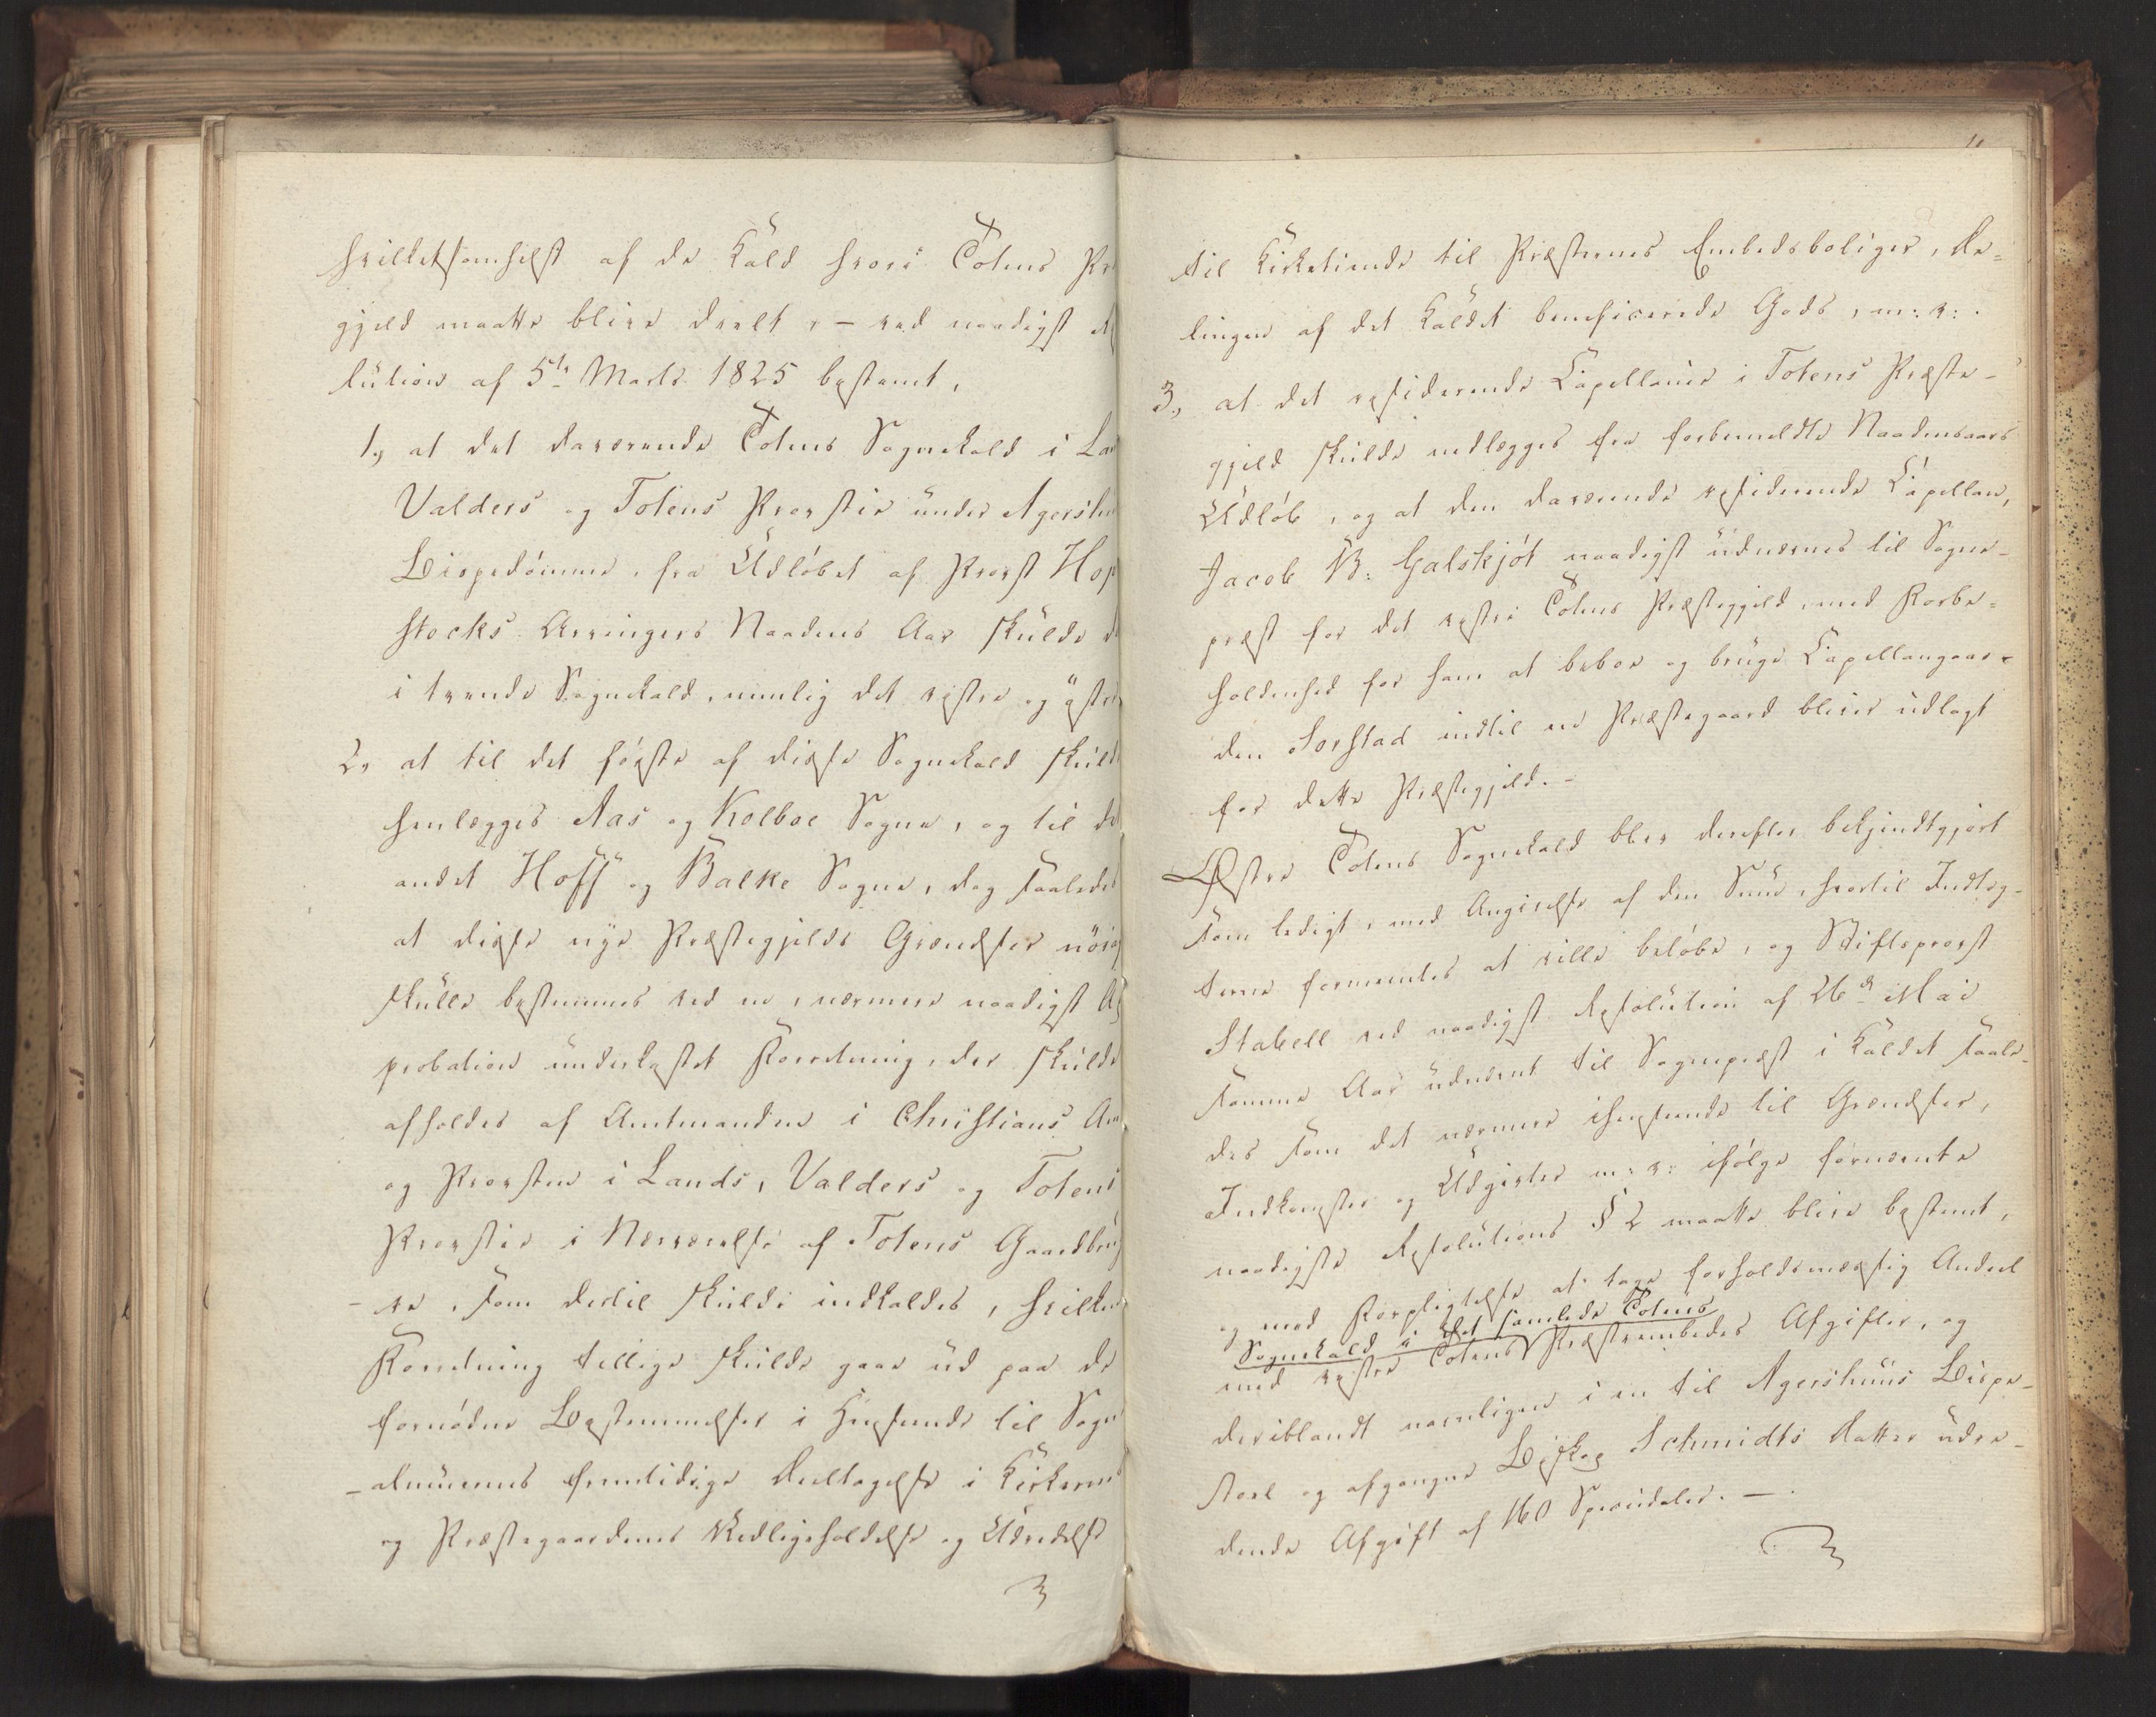 hvilketsomhelst af de Kald hvori Totens Pr
gjeld maatte blive deelt, – ved naadigst Re
lution af 5te Marts 1825 bestemt,
1, at det daværende Totens Sognekald i Lan
Valders og Totens Provstie under Agershu
Bispedømme, fra Udløbet af Provst Hop
stocks Arvingers Naadens Aar skulde d
i tvende Sognekald, nemlig det vestre og østre,
2, at til det første af disse Sognekald skuld
henlægges Aas og Kolboe Sogne, og til de
andet Hoff og Balke Sogne, dog saaledes
at disse nye Præstegjelds Grændser nöie
skulle bestemmes ved en, nærmere naadigst Ap
probation underkastet Forretning, der skulde
afholdes af Amtmanden i Christians Am
og Provsten i Lands, Valders og Totens
Provstie i Nærværelse af Totens Gaardbrug
– re, som dertil skulde indkaldes, hvilken
Forretning tillige skulde gaae ud paa de
fornødne Bestemmelser i Henseende til Sogn
– almuernes fremtidige Deeltagelse i Kirkernes
og Præstegaardenes Vedligeholdelse og Udredelse
til Kirketiende til Præsternes Embedsboliger, De-
lingen af det Kaldet beneficerede Gods, m: v: .
3, at det residerende Capellanie i Totens Præste-
gjeld skulde nedlægges fra forbemeldte Naadensaars
Udløb, og at den daværende residerende Capellan,
Jacob B: Galskjöt naadigst udnævnes til Sogne-
præst for det vestre Totens Præstegjeld, med Forbe-
holdenhed for ham at beboe og bruge Capellangaar-
den Sorstad indtil en Præstegaard bliver udlagt
for dette Præstegjeld. –
Østre Totens Sognekald blev derefter bekjendtgjort
som ledigt, med Angivelse af den Sum, hvortil Indtæg-
terne formentes at ville beløbe, og Stiftsprovst
Stabell ved naadigst Resolution af 26de Mai
samme Aar udnævnt til Sognepræst i Kaldet saale-
des som det nærmere ihenseende til Grændser,
Indkomster og Udgivter m: v: ifølge fornævnte
naadigste Resolutions § 2 maatte blive bestemt,
og med Forpligtelse at tage forholdsmæssig Andeel
Sognekald i det samlede Totens
med vestre Totens Præsteembedes Afgifter, og
deriblandt navnligen i en til Agershuus Bispe-
stoel og afgangne Biskop Schmidts Datter udre-
dende Afgift af 160 Speciedaler. –